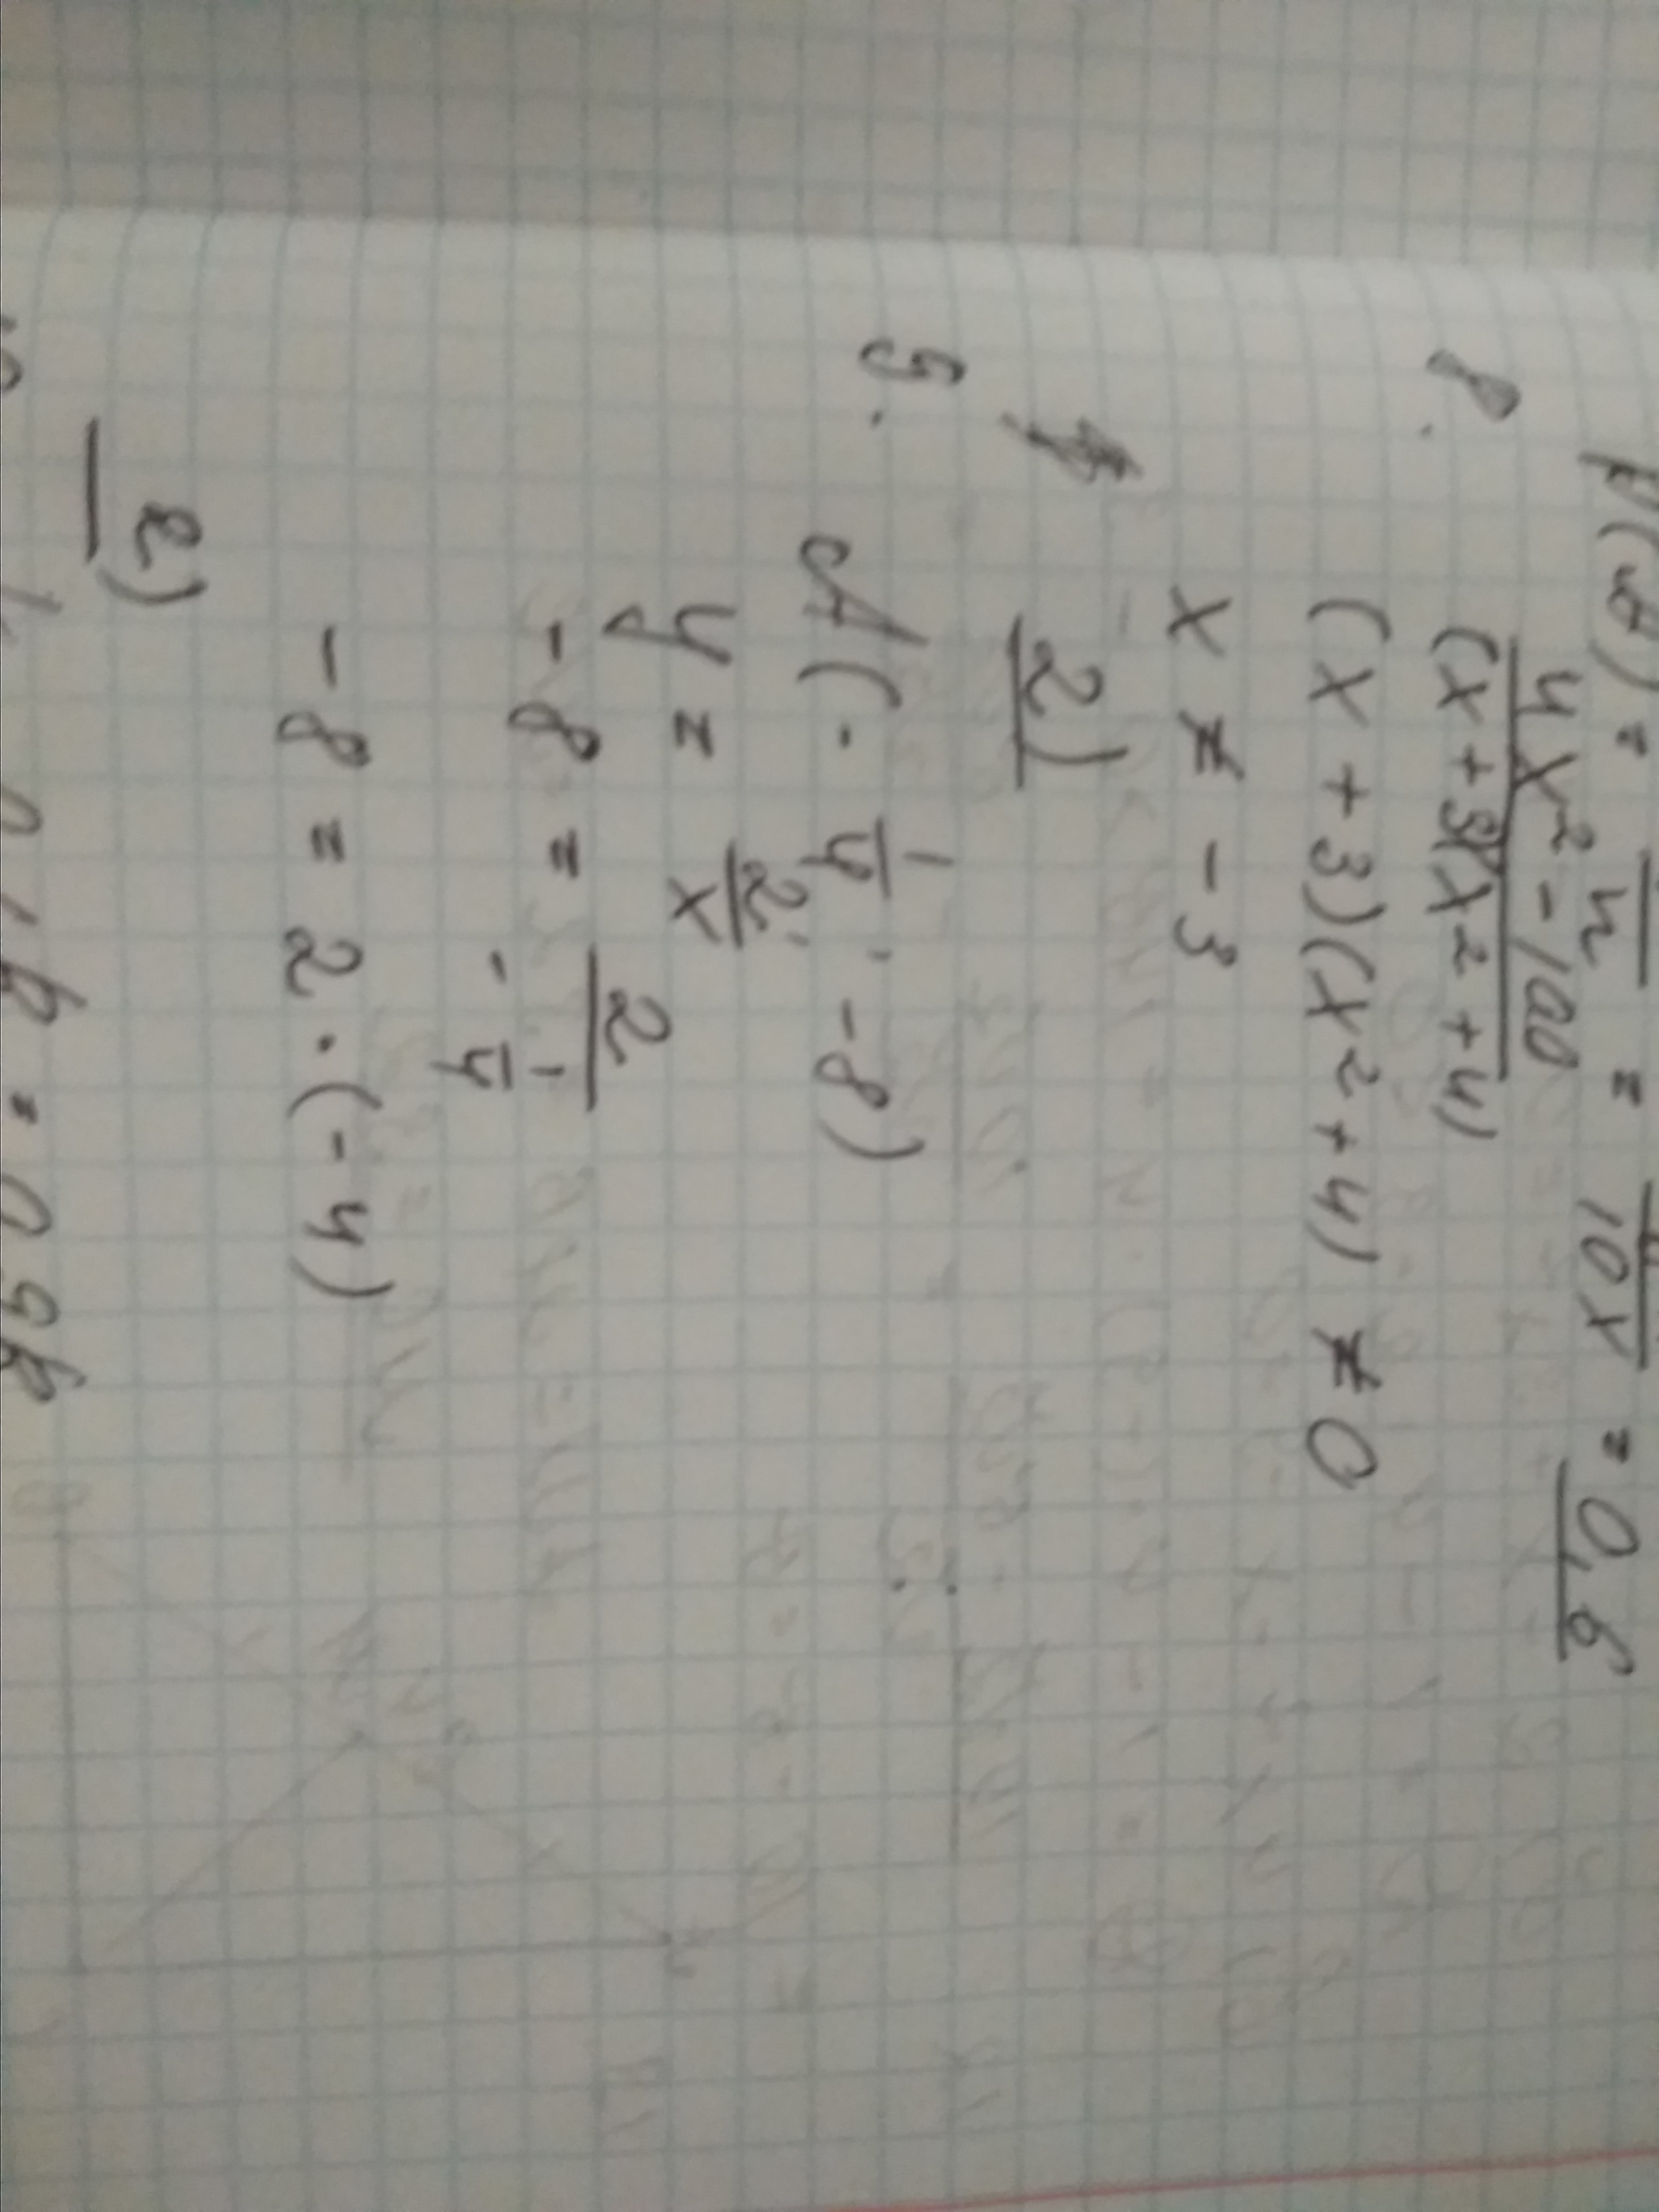 P(A) = — = — = 0,6
8. \frac{4x²-100}{(x+3)(x²+4)}
(x+3)(x²+4) ≠ 0
x ≠ -3
2)
9. A(-\frac{1}{4}; -8)
y = \frac{2}{x}
-8 = \frac{2}{-\frac{1}{4}}
-8 = 2·(-4)
2)